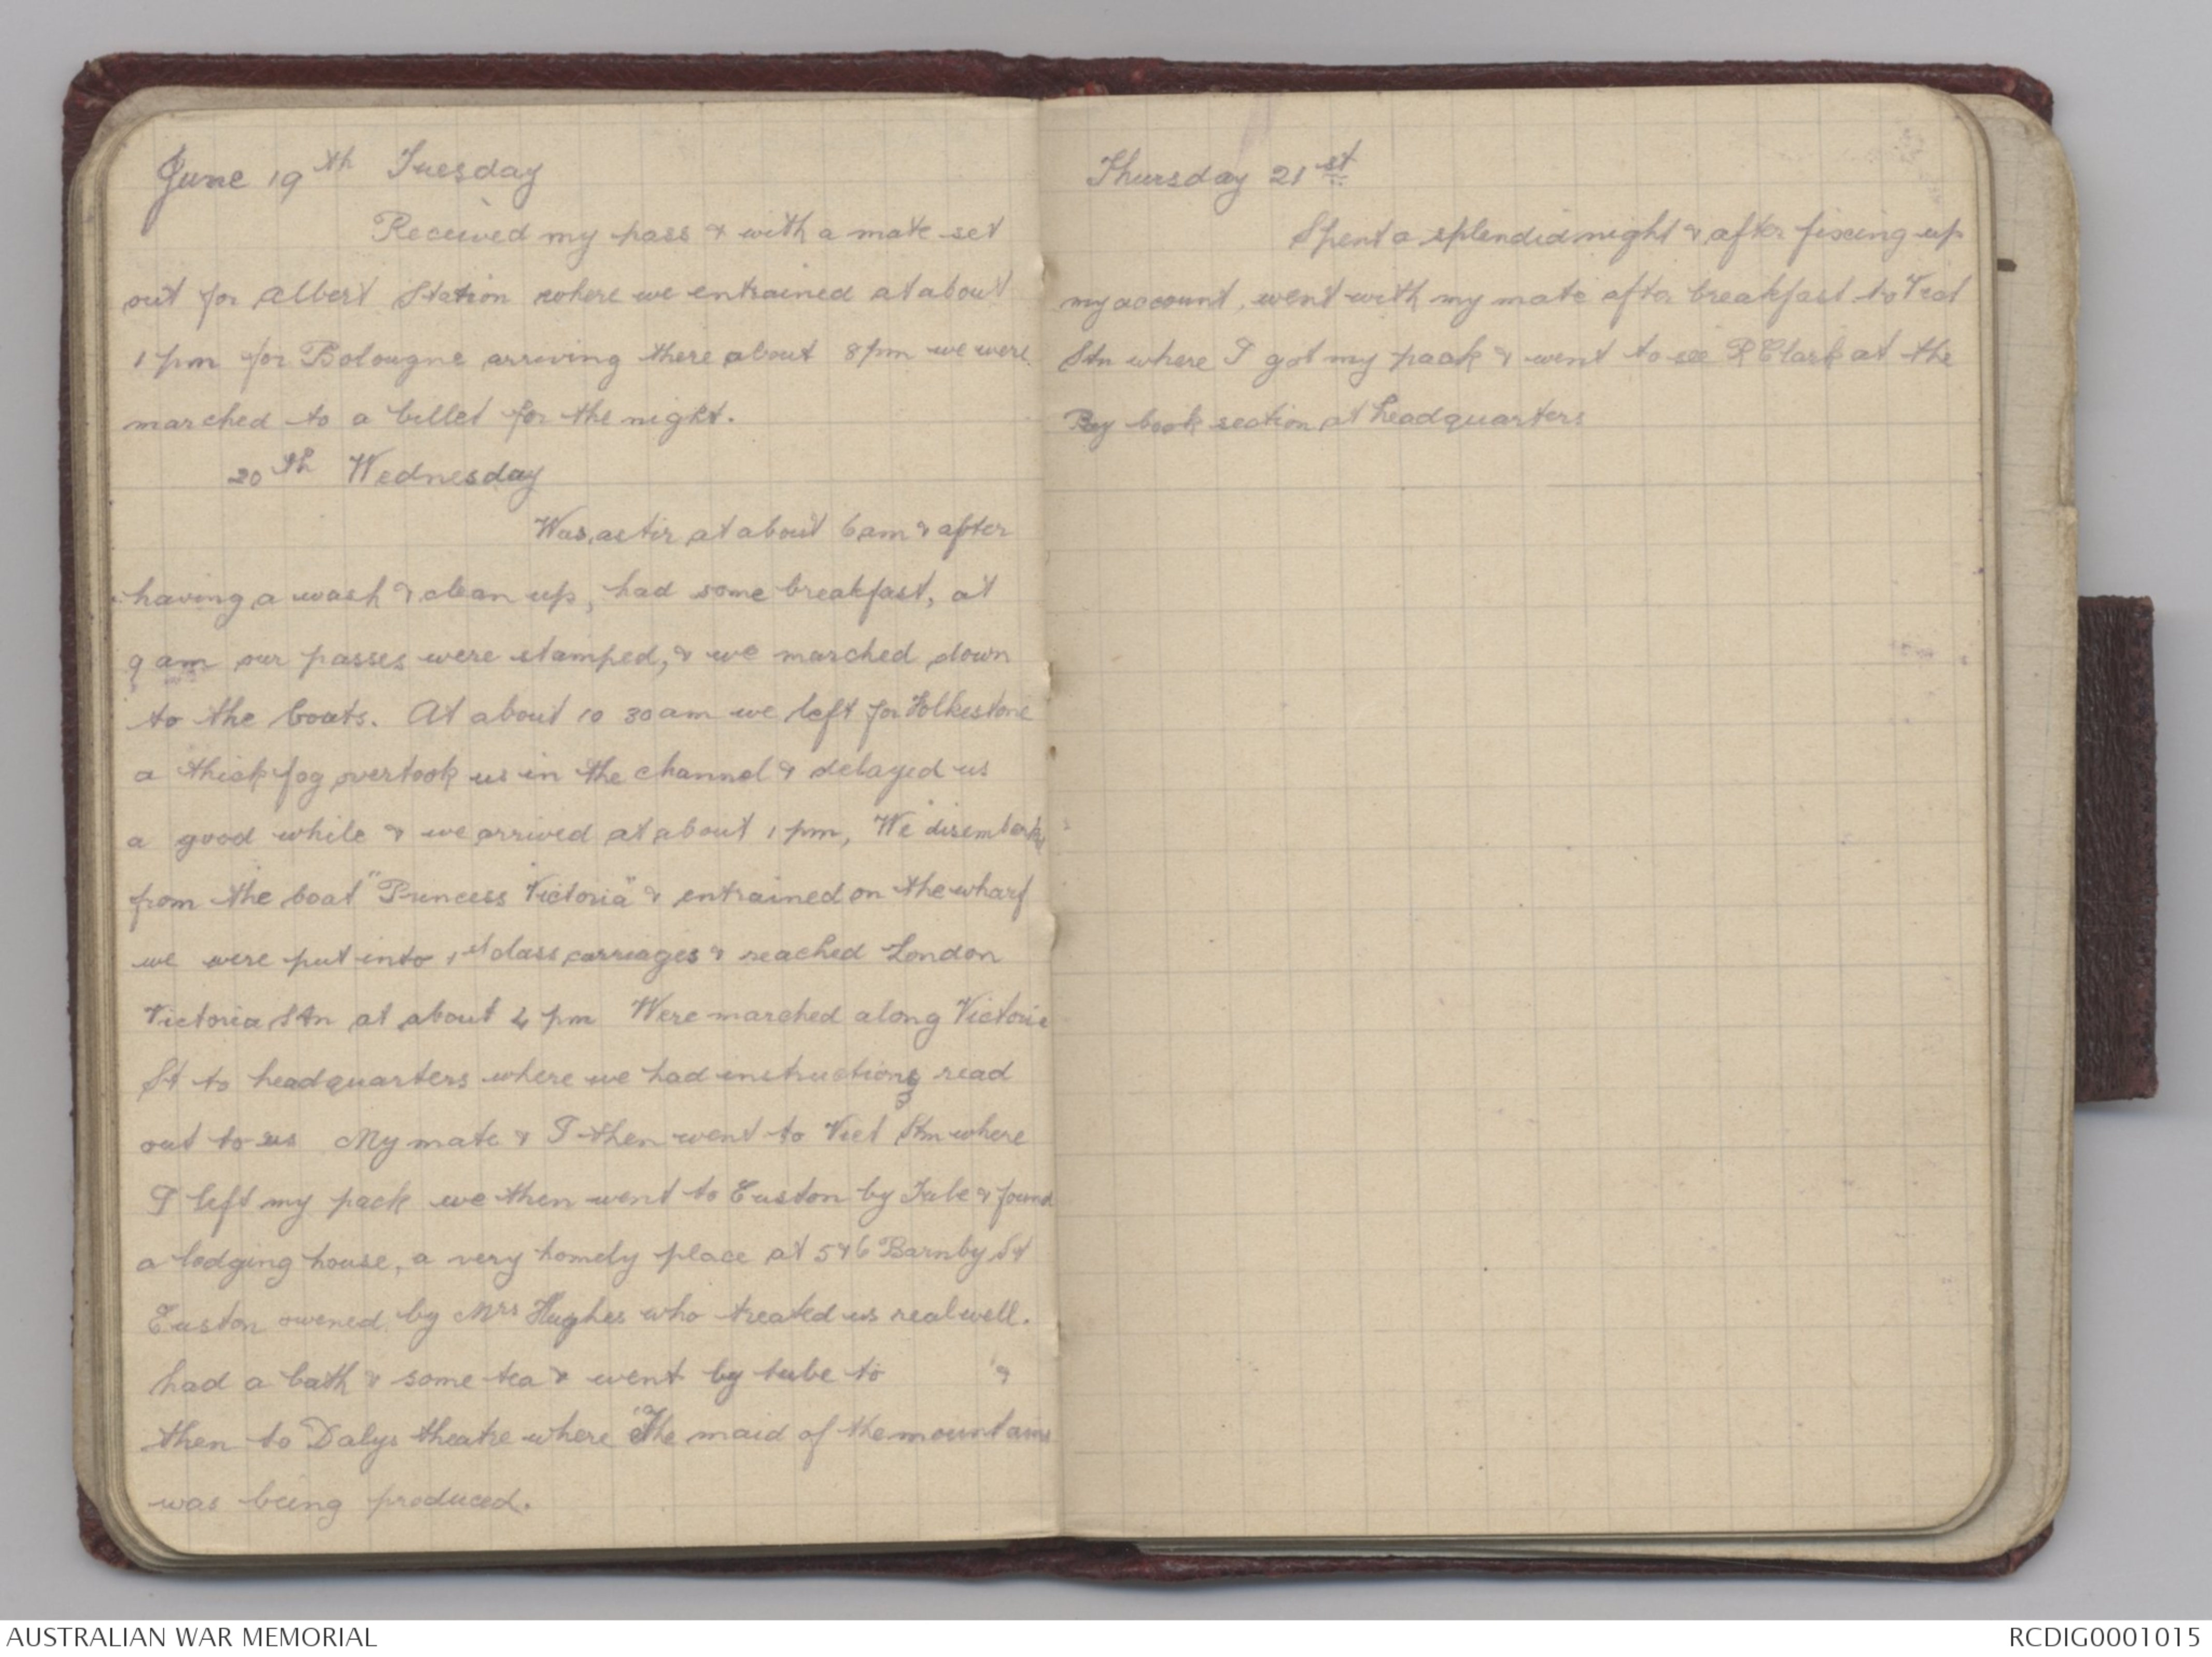 June 19th Tuesday
Received my pass & with a mate set
out for Albert Station where we entrained at about
1 pm for Bolougne arriving there about 8 pm we were
marched to a billet for the night.
20th Wednesday
Was astir at about 6 am & after
having a wash & clean up, had some breakfast, at
9 am our passes were stamped, & we marched down
to the boats. At about 10 30 am we left for Folkestone
a thick fog overtook us in the channel & delayed us
a good while & we arrived at about 1 pm, We disembarked
from the boat "Princess Victoria" & entrained on the wharf
we were put into 1st class carriages & reached London
Victoria Stn at about 4 pm Were marched along Victoria
St to headquarters where we had instructions read
out to us My mate & I then went to Vict Stn where
I left my pack we then went to Euston by Tube & found
a lodging house, a very homely place at 5 & 6 Barnby St
Euston owened by Mrs Hughes who treated us real well.
had a bath & some tea & went by tube to &
then to Dalys theatre where "The maid of the mountains
was being produced.
Thursday 21st
Spent a splendid night & after fixing up
my account, went with my mate after breakfast to Vict
Stn where I got my pack & went to see R Clark at the
Pay book section at headquarters
AUSTRALIAN WAR MEMORIAL
RCDIG0001015